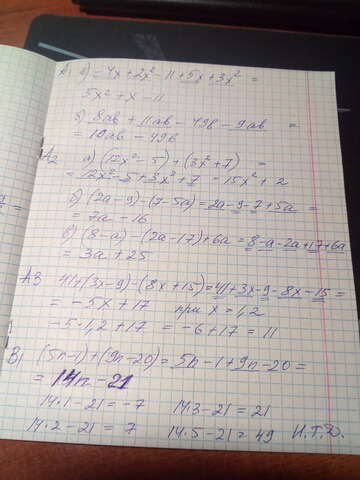 А1 а) -4x + 2x² - 11 + 5x + 3x² =
5x² + x - 11
б) 8ab + 11ab - 49b - 9ab =
= 10ab - 49b
А2 а) (12x² - 5) + (3x² + 7) =
= 12x² - 5 + 3x² + 7 = 15x² + 2
б) (2a - 9) - (7 - 5a) = 2a - 9 - 7 + 5a =
= 7a - 16
в) (8 - a) - (2a - 17) + 6a = 8 - a - 2a + 17 + 6a
= 3a + 25
А3 41 + (3x - 9) - (8x + 15) = 41 + 3x - 9 - 8x - 15 =
= -5x + 17 при x = 1,2
-5·1,2 + 17 = -6 + 17 = 11
В1 (5n - 1) + (9n - 20) = 5n - 1 + 9n - 20 =
= 14n - 21
14·1 - 21 = -7 14·3 - 21 = 21
14·2 - 21 = 7 14·5 - 21 = 49 И.Т.Д.